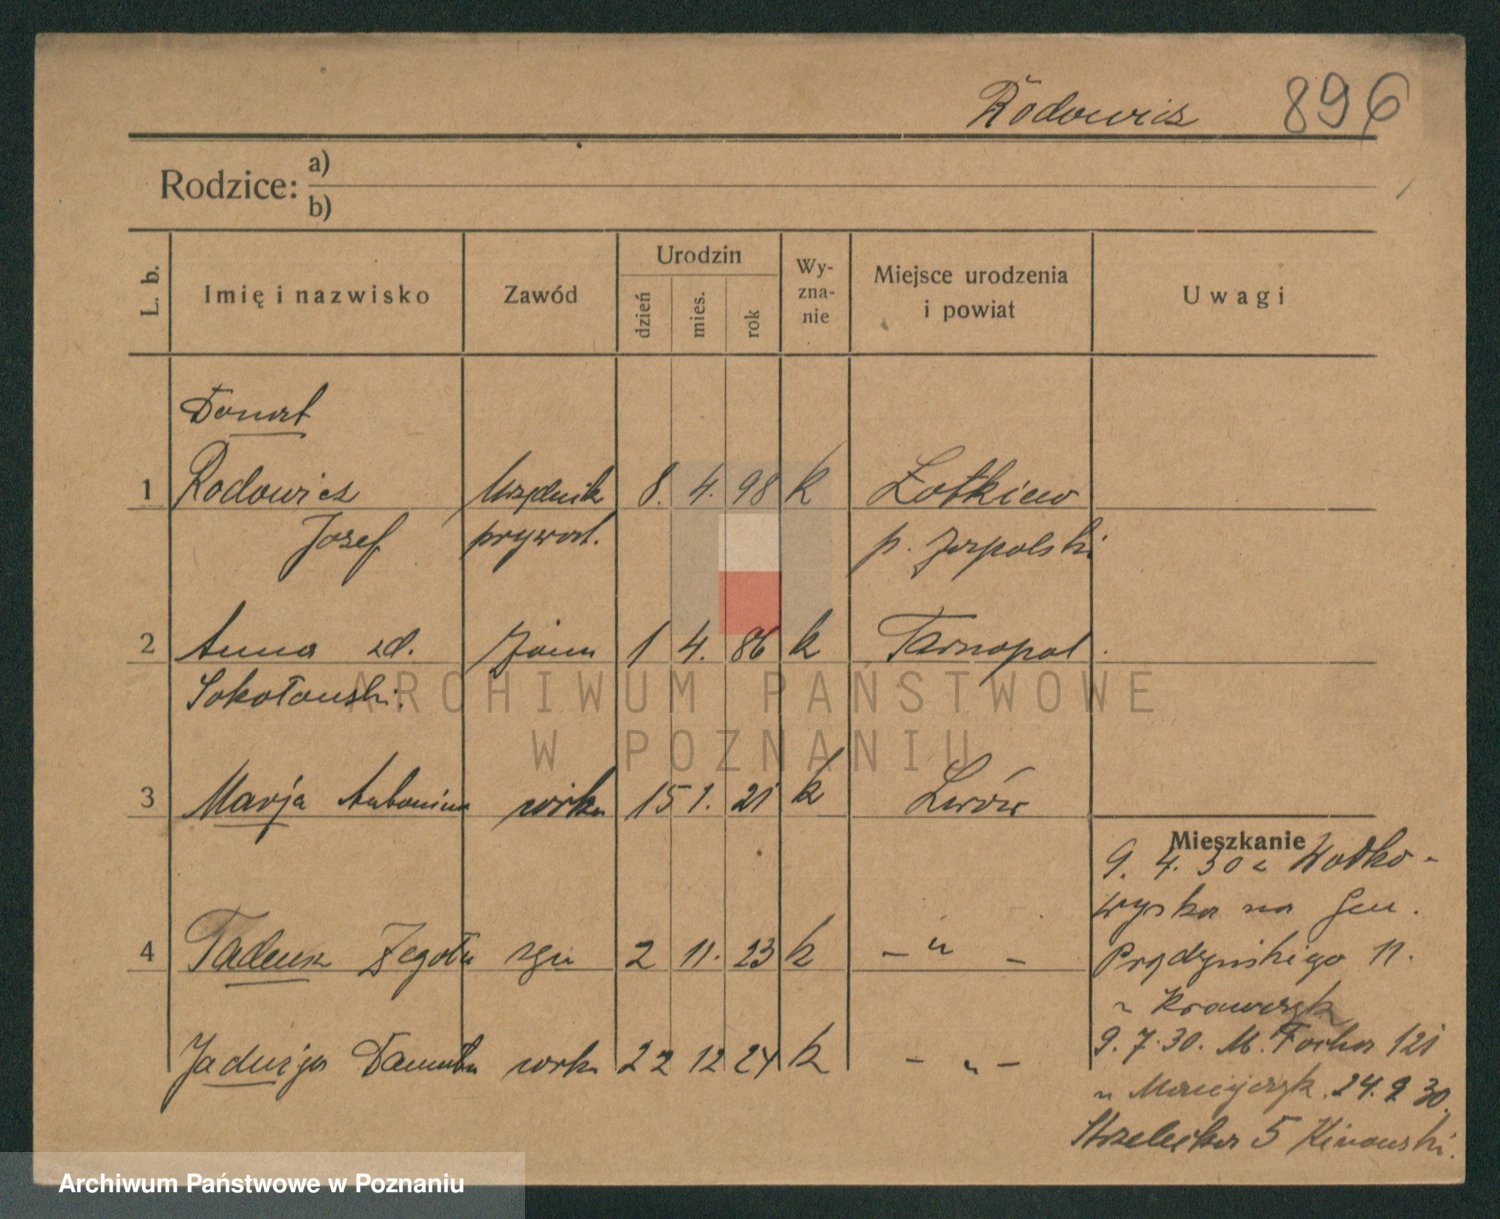 Rodowicz 896
Rodzice: a)
b)
L. b. Imię i nazwisko Zawód Urodzin dzień mies. rok Wy-zna-nie Miejsce urodzenia i powiat Uwagi
Donat
1 Rodowicz Urzędnik 8. 4. 98 k Żołkiew
Józef prywat. p.
2 Anna zd. Żona 1 4. 86 k Tarnopol
Sokołowski.
ARCHIWUM PAŃSTWOWE
W POZNANIU
3 Marja Antonina córka 15 1. 21 k Lwów
Mieszkanie
9. 4. 30 z Wołko-
wyska na Gen.
4 Tadeusz Żegota syn 2 11. 23 k — " — Prądzyńskiego 11.
u Krawczyk
9. 7. 30. M. Focha 121
Jadwiga Danuta córka 22 12 24 k — " —
u Maciejczyk. 24. 9 30.
Strzelecka 5
Archiwum Państwowe w Poznaniu